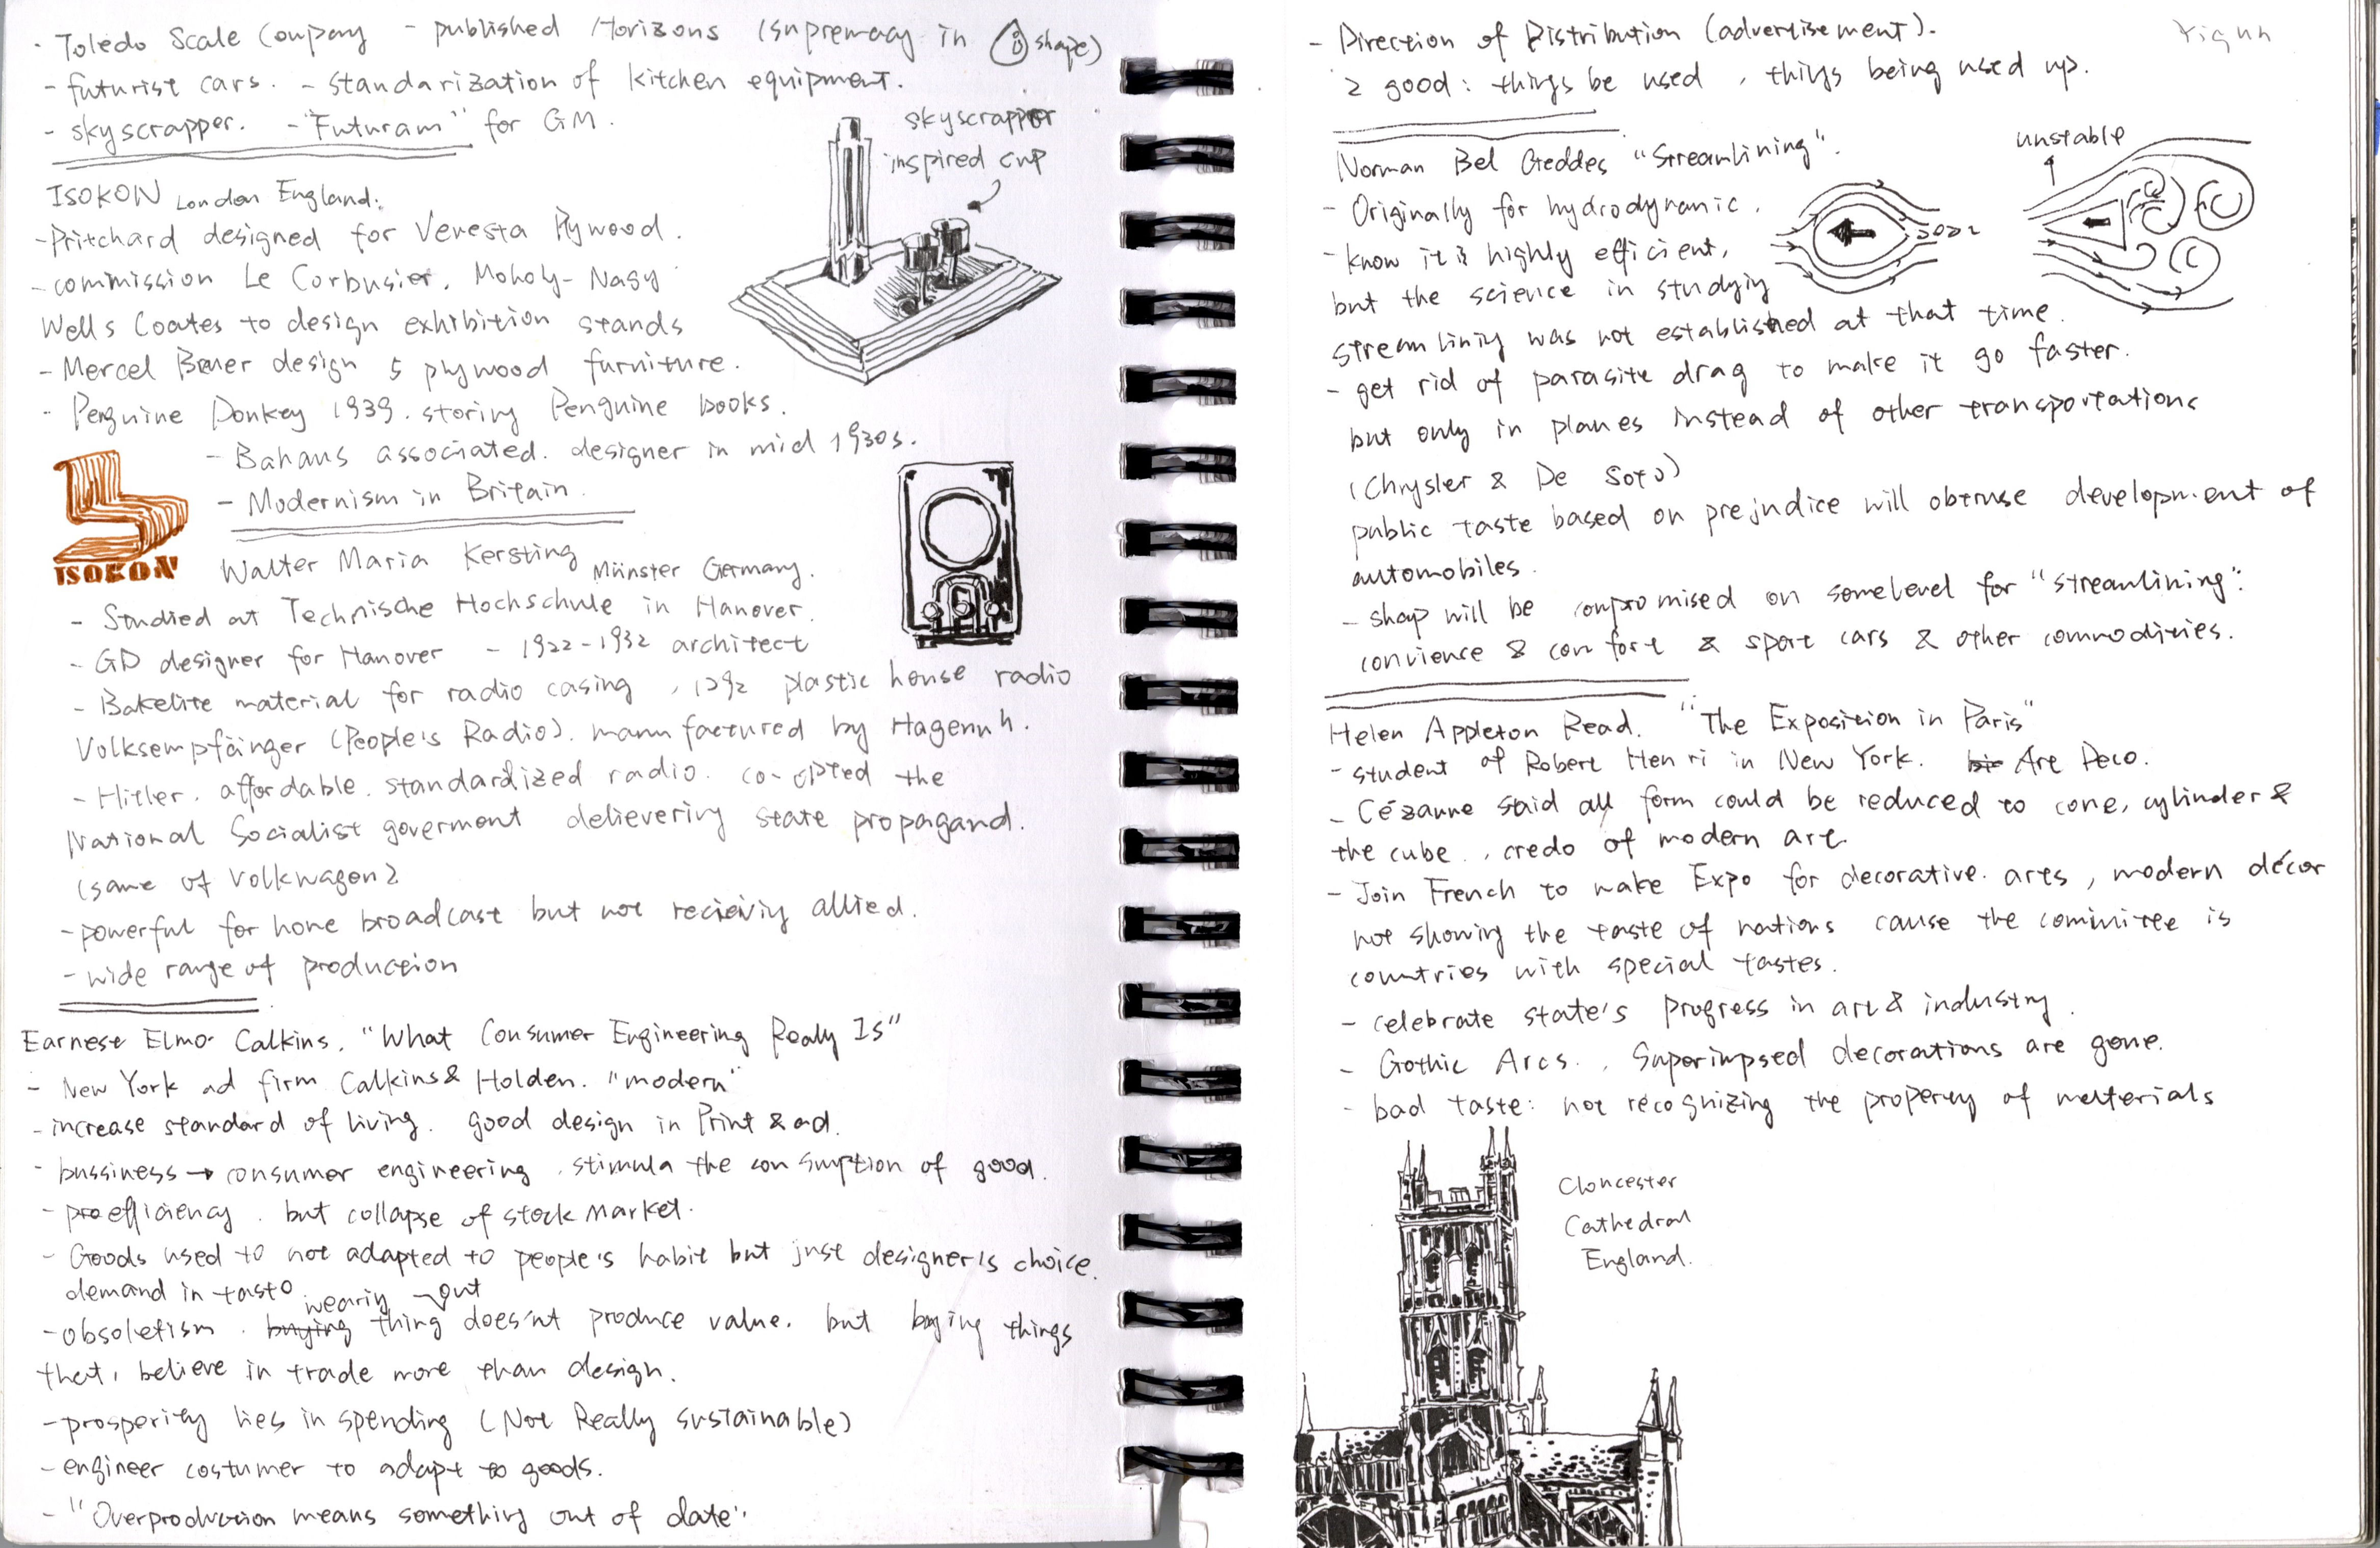 · Toledo Scale Coupany - published Horizons (supremacy in shape)
- futurist cars. - standarization of kitchen equipment.
- skyscrapper. - "Futuram" for GM.
skyscrapper
inspired cup
ISOKON London England.
- Pritchard designed for Venesta Plywood.
- commission Le Corbusier, Moholy-Nagy
Wells Coates to design exhibition stands
- Mercel Breuer design 5 plywood furniture.
- Penguine Donkey 1939. storing Penguine books.
- Bahaus associated. designer in mid 1930s.
- Modernism in Britain.
ISOKON
Walter Maria Kersting Münster Germany.
- Studied at Technische Hochschule in Hanover.
- GD designer for Hanover - 1922-1932 architect
- Bakelite material for radio casing, plastic house radio
Volksempfänger (People's Radio). manufactured by Hagenuh.
- Hitler. affordable. standardized radio. co-opted the
National Socialist goverment delievering state propagand.
(same of Volkwagen)
- powerful for home broadcast but not recieving allied.
- wide range of production
Earnest Elmo Calkins. "What Consumer Engineering Realy Is"
- New York ad firm Calkins & Holden. "modern"
- increase standard of living. good design in Print & ad.
- bussiness → consumer engineering. stimula the consumption of good.
- pro efficiency. but collapse of stock market.
- Goods used to not adapted to people's habit but just designer's choice.
demand in taste
wearing out
- obsoletism. buying thing does'nt produce value. but buying things
that, believe in trade more than design.
- prosperity lies in spending (Not Really sustainable)
- engineer costumer to adapt to goods.
- "Overproduction means something out of date".
- Direction of Distribution (advertisement).
2 good: things be used, things being used up.
Norman Bel Geddes "Streamlining".
unstable
- Originally for hydrodynamic.
- know it is highly efficient,
but the science in studying
streamlining was not established at that time.
- get rid of parasite drag to make it go faster.
but only in planes instead of other transportations
(Chrysler & De Soto)
public taste based on prejudice will obtruse development of
automobiles.
- shap will be conpromised on somelevel for "streamlining":
convience & comfort & sport cars & other commodities.
Helen Appleton Read. "The Exposition in Paris"
- student of Robert Henri in New York. Art Deco.
- Cézanne said all form could be reduced to cone, cylinder &
the cube., credo of modern art.
- Join French to make Expo for decorative arts, modern décor
not showing the taste of nations cause the committee is
countries with special tastes.
- celebrate state's progress in art & industry.
- Gothic Arcs., Superimpsed decorations are gone.
- bad taste: not recognizing the property of materials
Gloncester
Cathedral
England.